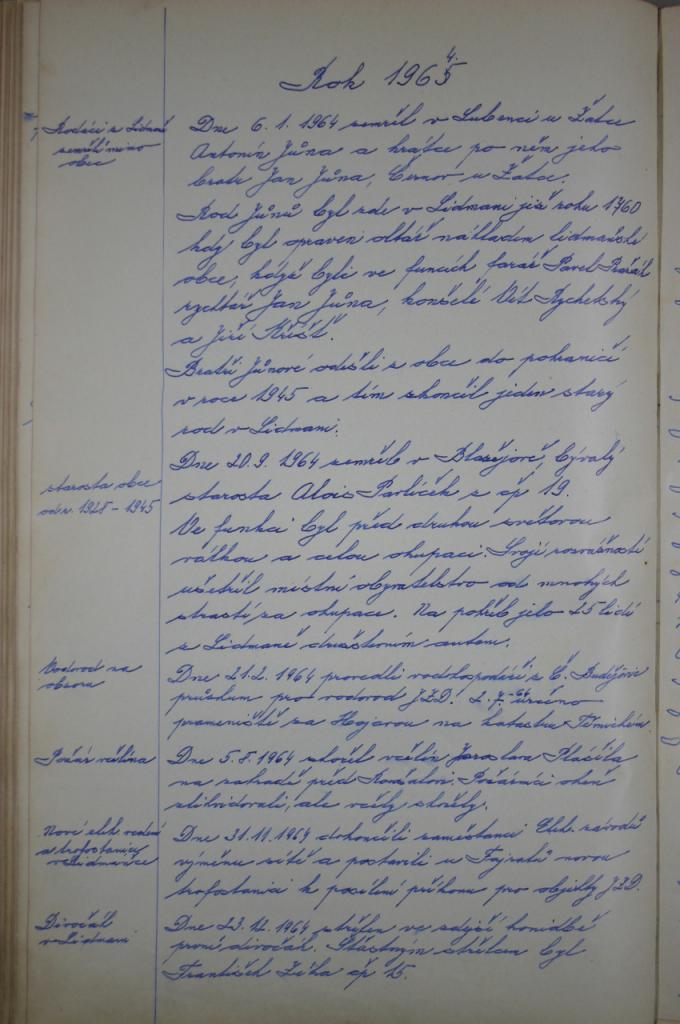 Rok 1965 4.
Rodáci z Lidmaň
zemřeli mimo
obec
Dne 6. 1. 1964 zemřel v Lubenci u Žatce
Antonín Jůna a krátce po něm jeho
bratr Jan Jůna, Černov u Žatce.
Rod Jůnů byl zde v Lidmani již roku 1760
kdy byl opraven oltář nákladem lidmaňské
obce, když byli ve funcích farář Pavel
rychtář Jan Jůna, konšelé Vít Rychetský
a Jiří Křišť.
Bratři Jůnové odešli z obce do pohraničí
v roce 1945 a tím skončil jeden starý
rod v Lidmani.
starosta obce
od r. 1928 - 1945
Dne 20. 9. 1964 zemřel v Blažejově, bývalý
starosta Alois Pavlíček z čp 19.
Ve funkci byl před druhou světovou
válkou a celou okupaci. Svojí rozvážností
ušetřil místní obyvatelstvo od mnohých
strastí za okupace. Na pohřeb jelo 25 lidí
z Lidmaně družstevním autem.
Vodovod na
obzoru
Dne 21. 2. 1964 provedli vodohospodáři z Č. Budějovic
průzkum pro vodovod JZD. 2. 7. určeno
prameniště za Hájovou na katastru
Požár včelína
Dne 5. 8. 1964 shořel včelín Jaroslava Pláčila
na zahradě před Konšalovi. Požárníci oheň
zlikvidovali, ale včely shořely.
Nové elek. vedení
a trafostanice
v Lidmaňce
Dne 31. 11. 1964 dokončili zaměstanci Elek. závodů
výměnu sítě a postavili u Fajratů novou
trafostanici k posílení příkonu pro objekty JZD.
Divočák
v Lidmani
Dne 23. 12. 1964 střelen ve zdejší honidbě
první divočák. Šťastným střelcem byl
František Zíka čp 15.